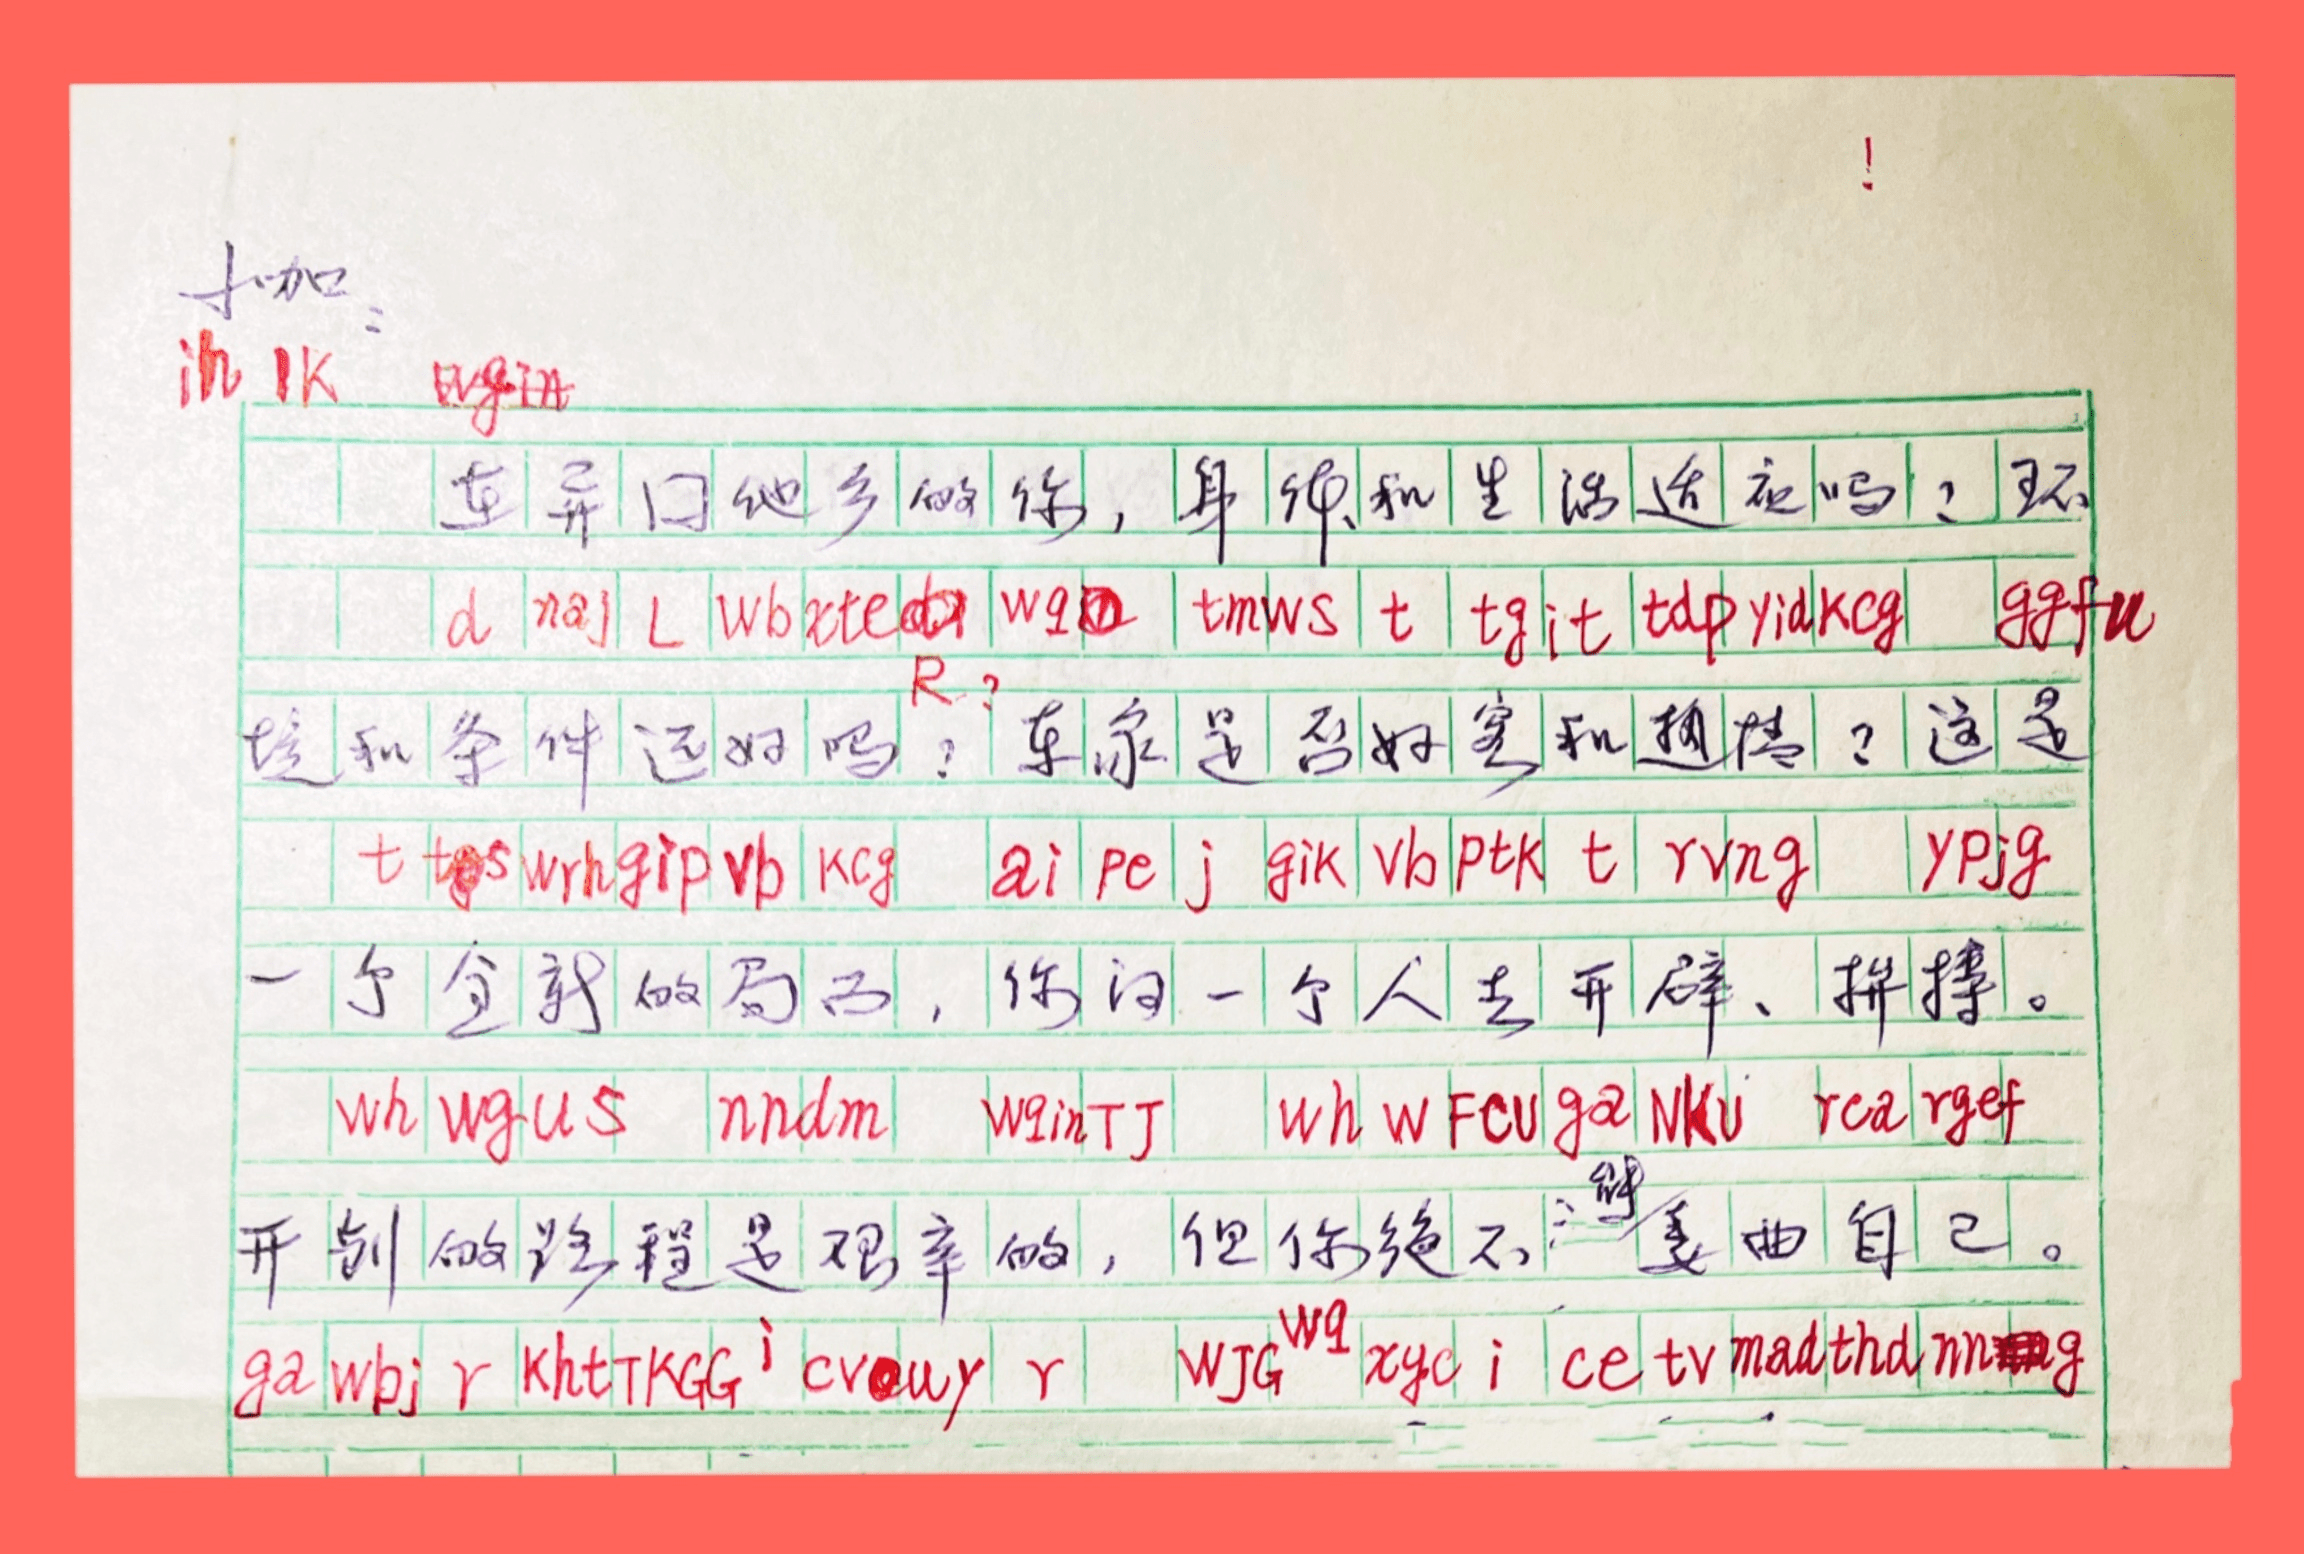 !
小加：
ih lK
在异国他乡的你，身体和生活适应吗？环
d naj L wb xte wq tmws t tg it tdp yid kcg ggfu
R ?
境和条件还好吗？东家是否好客和热情？这是
t tgs wrh gip vb kcg ai pe j gik vb ptk t rvng ypjg
一个全新的局面，你得一个人去开辟、拼搏。
wh wg us nndm wqin TJ wh w FCU ga NKU rca rgef
开创的路程是艰辛的，但你绝不能委曲自己。
ga wbj r kht TKGG i cv uy r WJG wq xyc i ce tv mad thd nng